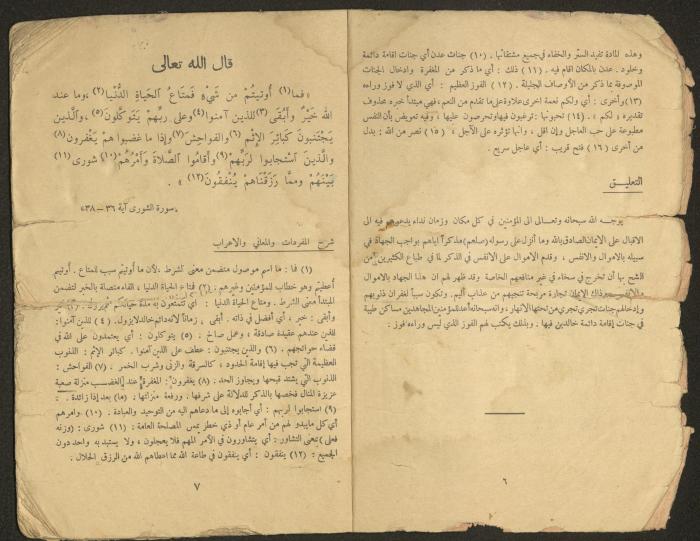 وهذه المادة تفيد الستر والخفاء في جميع مشتقاتها . (١٠) جنات عدن أي جنات اقامة دائمة
وخلود . عدن بالمكان اقام فيه . (١١) ذلك : أي ما ذكر من المغفرة وادخال الجنات
الموصوفة بما ذكر من الأوصاف الجليلة . (١٢) الفوز العظيم : أي الذي لا فوز وراءه
(١٣) وأخرى : أي ولكم نعمة اخرى علاوة على ما تقدم من النعم ، فهي مبتدأ خبره محذوف
تقديره ، لكم » . (١٤) تحبونها : ترغبون فيها وتحرصون عليها ، وفيه تعريض بأن النفس
مطبوعة على حب العاجل وإن اقل ، وانها تؤثره على الآجل ، (١٥) نصر من الله : بدل
من أخرى (١٦) فتح قريب : أي عاجل سريع .
التعليق
يوجه الله سبحانه وتعالى الى المؤمنين في كل مكان وزمان نداء يدعوهم فيه الى
الاقبال على الايمان الصادق بالله وما أنزل على رسوله (صلعم) مذكراً اياهم بواجب الجهاد في
سبيله بالاموال والانفس ، وقدم الاموال على الانفس في الذكر لما في طباع الكثيرين من
الشح بها أن تخرج في سخاء في غير منافعهم الخاصة وقد ظهر لهم ان هذا الجهاد بالاموال
والانفس وذلك الايمان تجارة مربحة تنجيهم من عذاب أليم . وتكون سبباً لغفران ذنوبهم
وإدخالهم جنات تجري من تحتها الأنهار ، وانه سبحانه أعد للمؤمنين المجاهدين مساكن طيبة
في جنات إقامة دائمة خالدين فيها . وبذلك يكتب لهم الفوز الذي ليس وراءه فوز .
٦
قال الله تعالى
«فما(١) أوتيتُم من شَيْءٍ فَمتَاعُ الحَياةِ الدُّنْيا(٢) ، وما عند
الله خَيْرٌ وأبْقَى(٣) للذين آمنوا(٤) وعلى ربِّهِمْ يَتَوكَّلُونَ(٥) ، والَّذين
يَجْتَنِبونَ كَبائِرَ الإثْمِ(٦) والفواحِشَ(٧) وإذا ما غضِبوا هم يَغْفِرون(٨)
والَّذينَ آسْتجابوا لِرَبِّهِمْ(٩) وأقامُوا الصَّلاةَ وأمْرُهُمْ(١٠) شورى(١١)
بَيْنَهُمْ ومما رَزَقْنَاهُم يُنْفِقُونَ(١٢) » .
«سورة الشورى آية ٣٦ – ٣٨»
شرح المفردات والمعاني والاعراب
(١) فما : ما اسم موصول متضمن معنى الشرط ، لأن ما أوتيتم سبب للمتاع . أوتيتم
أعطيتم وهو خطاب للمؤمنين وغيرهم : (٢) فمتاع الحياة الدنيا ، الفاء متصلة بالخبر لتضمن
المبتدأ معنى الشرط . ومتاع الحياة الدنيا : أي تتمتعون به مدة حياتكم
وأبقى : خير ، أي أفضل في ذاته . أبقى ، زماناً لانه دائم خالد لا يزول . (٤) للذين آمنوا:
للذين عندهم عقيدة صادقة ، وعمل صالح . (٥) يتوكلون : أي يعتمدون على الله في
قضاء حوائجهم . (٦) والذين يجتنبون : عطف على الذين آمنوا . كبائر الإثم : الذنوب
العظيمة التي تجب فيها إقامة الحدود ، كالسرقة والزنى وشرب الخمر . (٧) الفواحش :
الذنوب التي يشتد قبحها ويجاوز الحد . (٨) يغفرون : المغفرة عند الغضب منزلة صعبة
عزيزة المنال فخصها بالذكر للدلالة على شرفها . ورفعة منزلتها ، (ما) بعد إذا زائدة . :
(٩) استجابوا لربهم : أي أجابوه إلى ما دعاهم اليه من التوحيد والعبادة . (١٠) وأمرهم
أي كل ما يبدو لهم من أمر عام أو ذي خطر يمس المصلحة العامة : (١١) شورى : (وزنه
فعلى) بمعنى التشاور : أي يتشاورون في الأمر المهم فلا يعجلون ، ولا يستبد به واحد دون
الجميع : (١٢) ينفقون : أي ينفقون في طاعة الله مما اعطاهم الله من الرزق الحلال .
٧